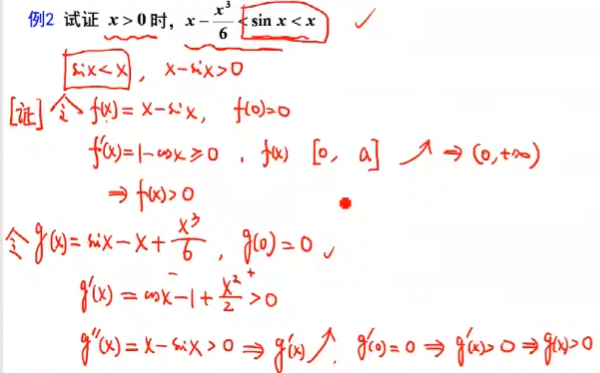 例2 试证 x > 0 时, x - x³/6 < sin x < x ✓
six < x , x - six > 0
[证] 令 f(x) = x - six, f(0) = 0
f'(x) = 1 - cosx ≥ 0 , f(x) [0, a] ↗ ⇒ (0, +∞)
⇒ f(x) > 0
令 g(x) = six - x + x³/6 , g(0) = 0 ✓
g'(x) = cosx - 1 + x²/2 > 0
g''(x) = x - six > 0 ⇒ g'(x) ↗ . g'(0) = 0 ⇒ g'(x) > 0 ⇒ g(x) > 0